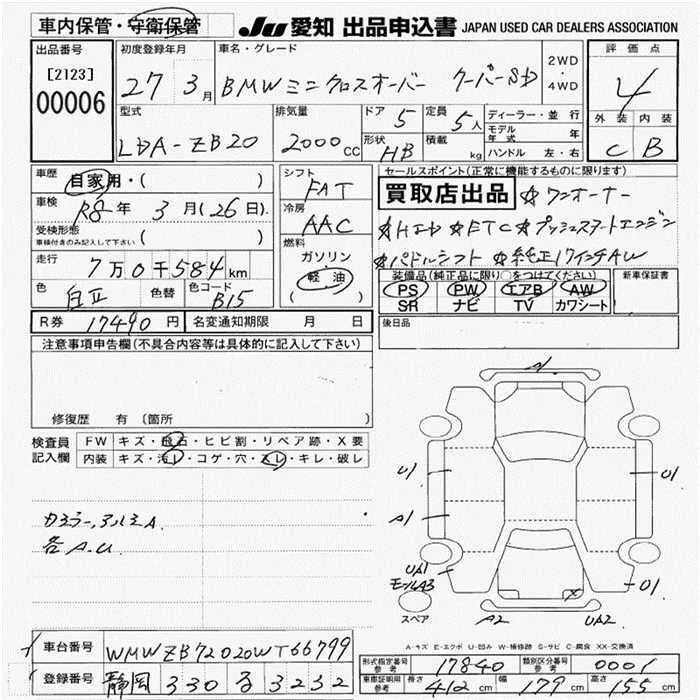 車内保管・守衛保管 JU 愛知 出品申込書 JAPAN USED CAR DEALERS ASSOCIATION
出品番号 初度登録年月 車名・グレード 2WD・4WD 評価点
[2123] 00006 27 3月 BMWミニクロスオーバー クーパーSD 4
型式 排気量 ドア 5 定員 5人 ディーラー・並行 外装 内装
LDA-ZB20 2000cc 形状 HB 積載 kg モデル年式 年 C B
ハンドル 左・右
車歴 自家用・( ) シフト FAT セールスポイント(正常に機能するものに限ります)
買取店出品 ☆ワンオーナー
車検 R8年 3月(26日) 冷房 AAC ☆HID ☆ETC ☆プッシュスタートエンジン
受検形態 車検付きのみ記入して下さい ( ) 燃料 ガソリン ☆パドルシフト ☆純正17インチAW
走行 7万0千584km 軽油 ( )
装備品(純正品に限り○をつけてください) 新車保証書
色 白II 色替 色コード B15 PS PW エアB AW
SR ナビ TV カワシート
R券 17490円 名変通知期限 月 日 後日品
注意事項申告欄(不具合内容等は具体的に記入して下さい)
修復歴 有 (箇所
検査員記入欄 FW キズ・飛石・ヒビ割・リペア跡・X要
内装 キズ・汚レ・コゲ・穴・スレ・キレ・破レ
U1 U1
カミラー、アルミA. A1
各A.U. UA1 モールA3 U1
スペア A2 X UA2
A-キズ E-エクボ U-凹み W-補修跡 S-サビ C-腐食 XX-交換済
車台番号 WMWZB72020WT66799
登録番号 静岡 330 る 3232
形式指定番号 参考 17840 類別区分番号 参考 0001
車庫証明用 参考 長さ 412cm 幅 179cm 高さ 155cm